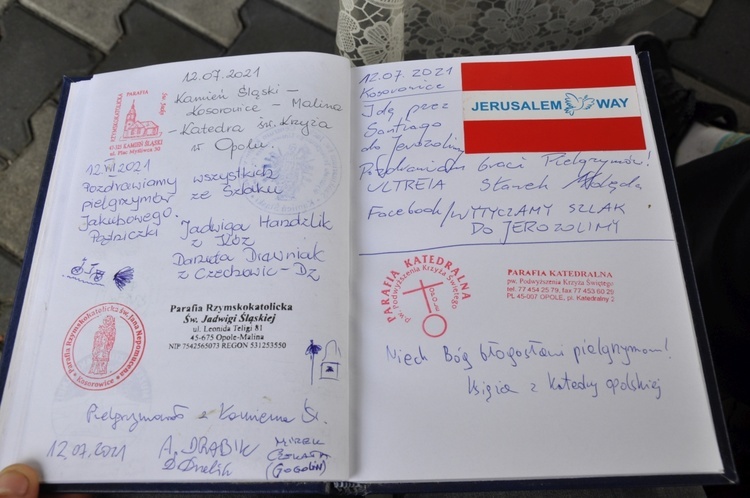 12.07.2021
PARAFIA
RZYMSKOKATOLICKA
św. Jacka
47-325 KAMIEŃ ŚLĄSKI
Kamień Śląski -
Kosorowice - Malina
- Katedra św. Krzyża
w Opolu.
12 VII 2021
Pozdrawiamy wszystkich
pielgrzymów ze Szlaku
Jakubowego.
Jadwiga Handzlik
z Kóz
Danuta Drawniak
z Czechowic-Dz
Parafia Rzymskokatolicka św. Jana Nepomucena
Kosorowice
Parafia Rzymskokatolicka
Św. Jadwigi Śląskiej
ul. Leonida Teligi 81
45-675 Opole-Malina
NIP 7542565073 REGON 531253550
Pielgrzymka z Kamienia Śl.
12.07.2021
A. DRABIK
MIREK
(GOGOLIN)
12.07.2021
Kosorowice
JERUSALEM WAY
Idę przez
Santiago
do Jerozolimy
Pozdrawiam braci Pielgrzymów!
ULTREIA Stanek
Facebook/WYTYCZAMY SZLAK
DO JEROZOLIMY
PARAFIA KATEDRALNA
p.w. Podwyższenia Krzyża Świętego
OPOLE
PARAFIA KATEDRALNA
pw. Podwyższenia Krzyża Świętego
tel. 77 454 25 79, fax 77 453 60 29
PL 45-007 OPOLE, pl. Katedralny 2
Niech Bóg błogosławi pielgrzymom!
Księża z katedry opolskiej